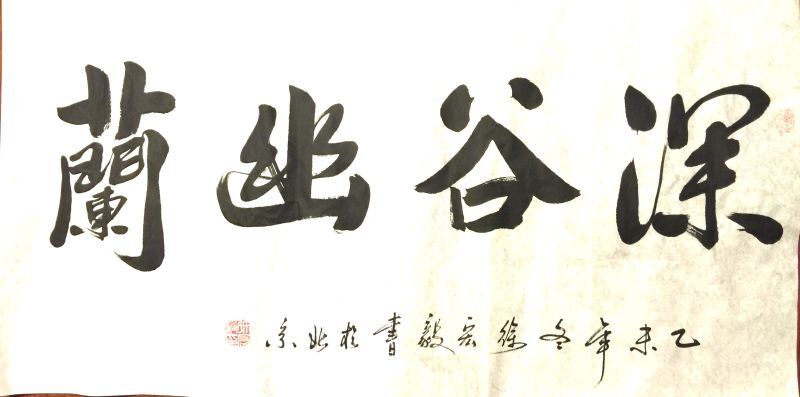 深谷幽蘭
乙未年冬徐宏毅書於北京